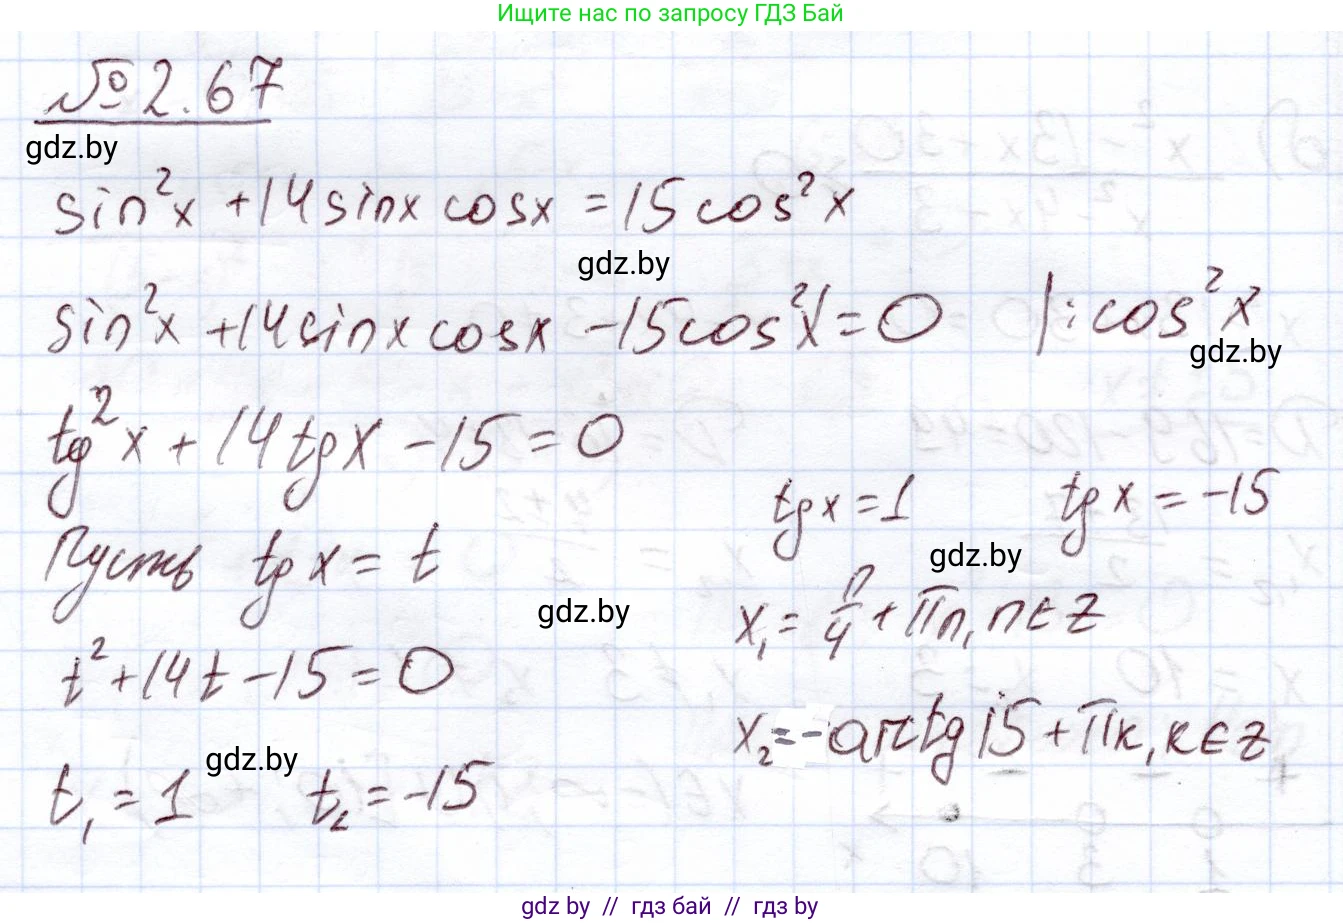 Ищите нас по запросу ГДЗ Бай
№ 2.67
gdz.by
sin²x + 14 sinx cosx = 15 cos²x
gdz.by
sin²x + 14 sinx cosx - 15 cos²x = 0 |: cos²x
gdz.by
tg²x + 14 tgx - 15 = 0
Пусть tg x = t
gdz.by
t² + 14t - 15 = 0
gdz.by
t₁ = 1 t₂ = -15
tg x = 1 tg x = -15
gdz.by
x₁ = π/4 + πn, n ∈ z
x₂ = - arctg 15 + πk, k ∈ z
gdz by // гдз бай // гдз by